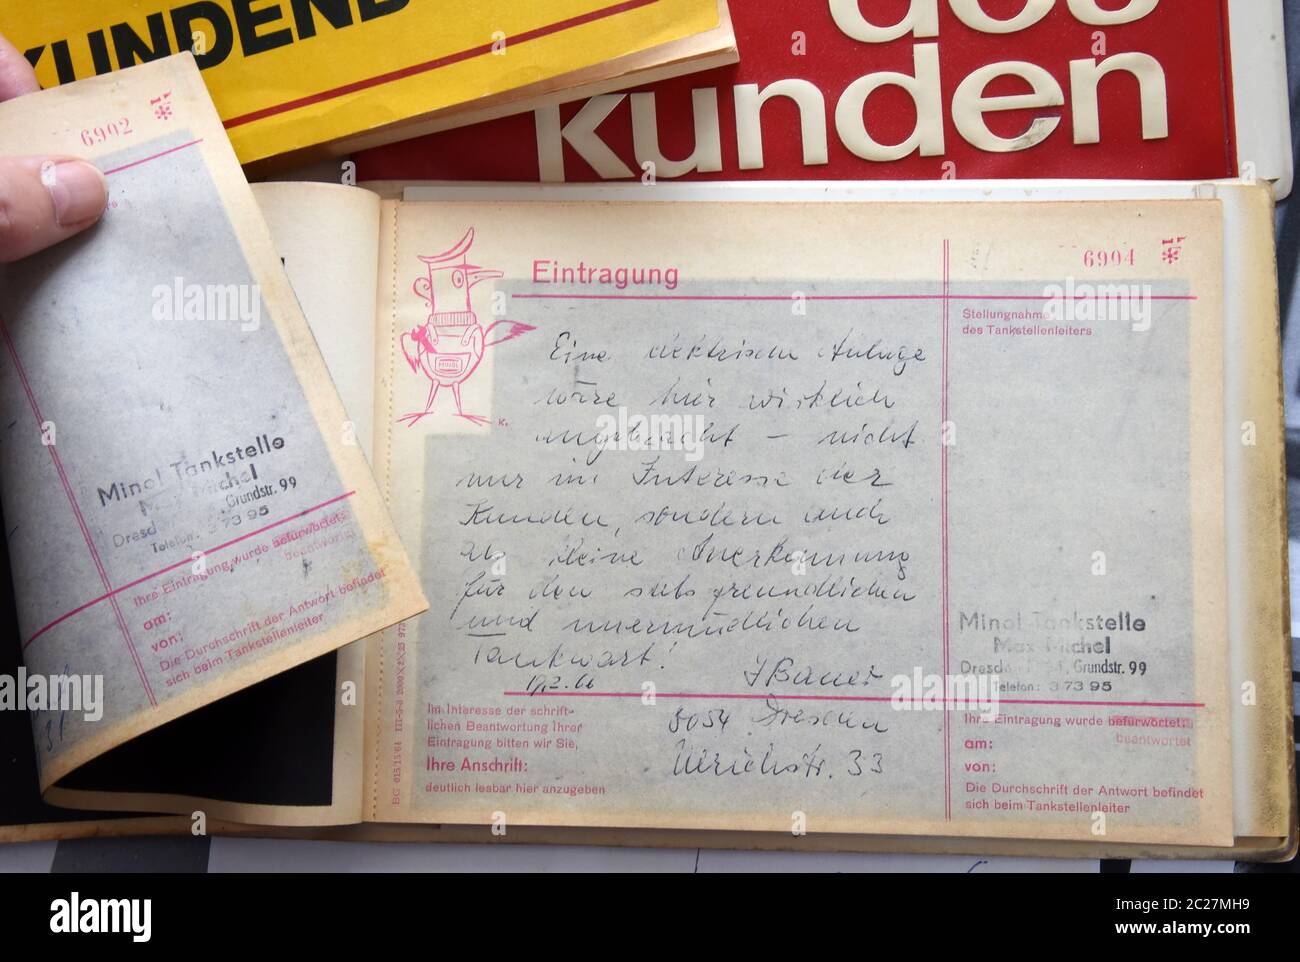 KUNDENB
des
kunden
6902
Minol-Tankstelle
Max Michel
Dresd , Grundstr. 99
Telefon: 3 73 95
Ihre Eintragung wurde befürwortet:
beantwortet
am:
von:
Die Durchschrift der Antwort befindet
sich beim Tankstellenleiter
Eintragung
6904
MINOL
K.
Stellungnahme
des Tankstellenleiters
Eine elektrische Anlage
wäre hier wirklich
angebracht – nicht
nur im Interesse der
Kunden, sondern auch
als kleine Anerkennung
für den stets freundlichen
und unermüdlichen
Tankwart!
19.2.66
Bauer
8054 Dresden
Ulrichstr. 33
Minol-Tankstelle
Max Michel
Dresd , Grundstr. 99
Telefon: 3 73 95
Im Interesse der schrift-
lichen Beantwortung Ihrer
Eintragung bitten wir Sie,
Ihre Anschrift:
deutlich lesbar hier anzugeben
Ihre Eintragung wurde befürwortet:
beantwortet
am:
von:
Die Durchschrift der Antwort befindet
sich beim Tankstellenleiter
alamy
Image ID: 2C27MH9
www.alamy.com